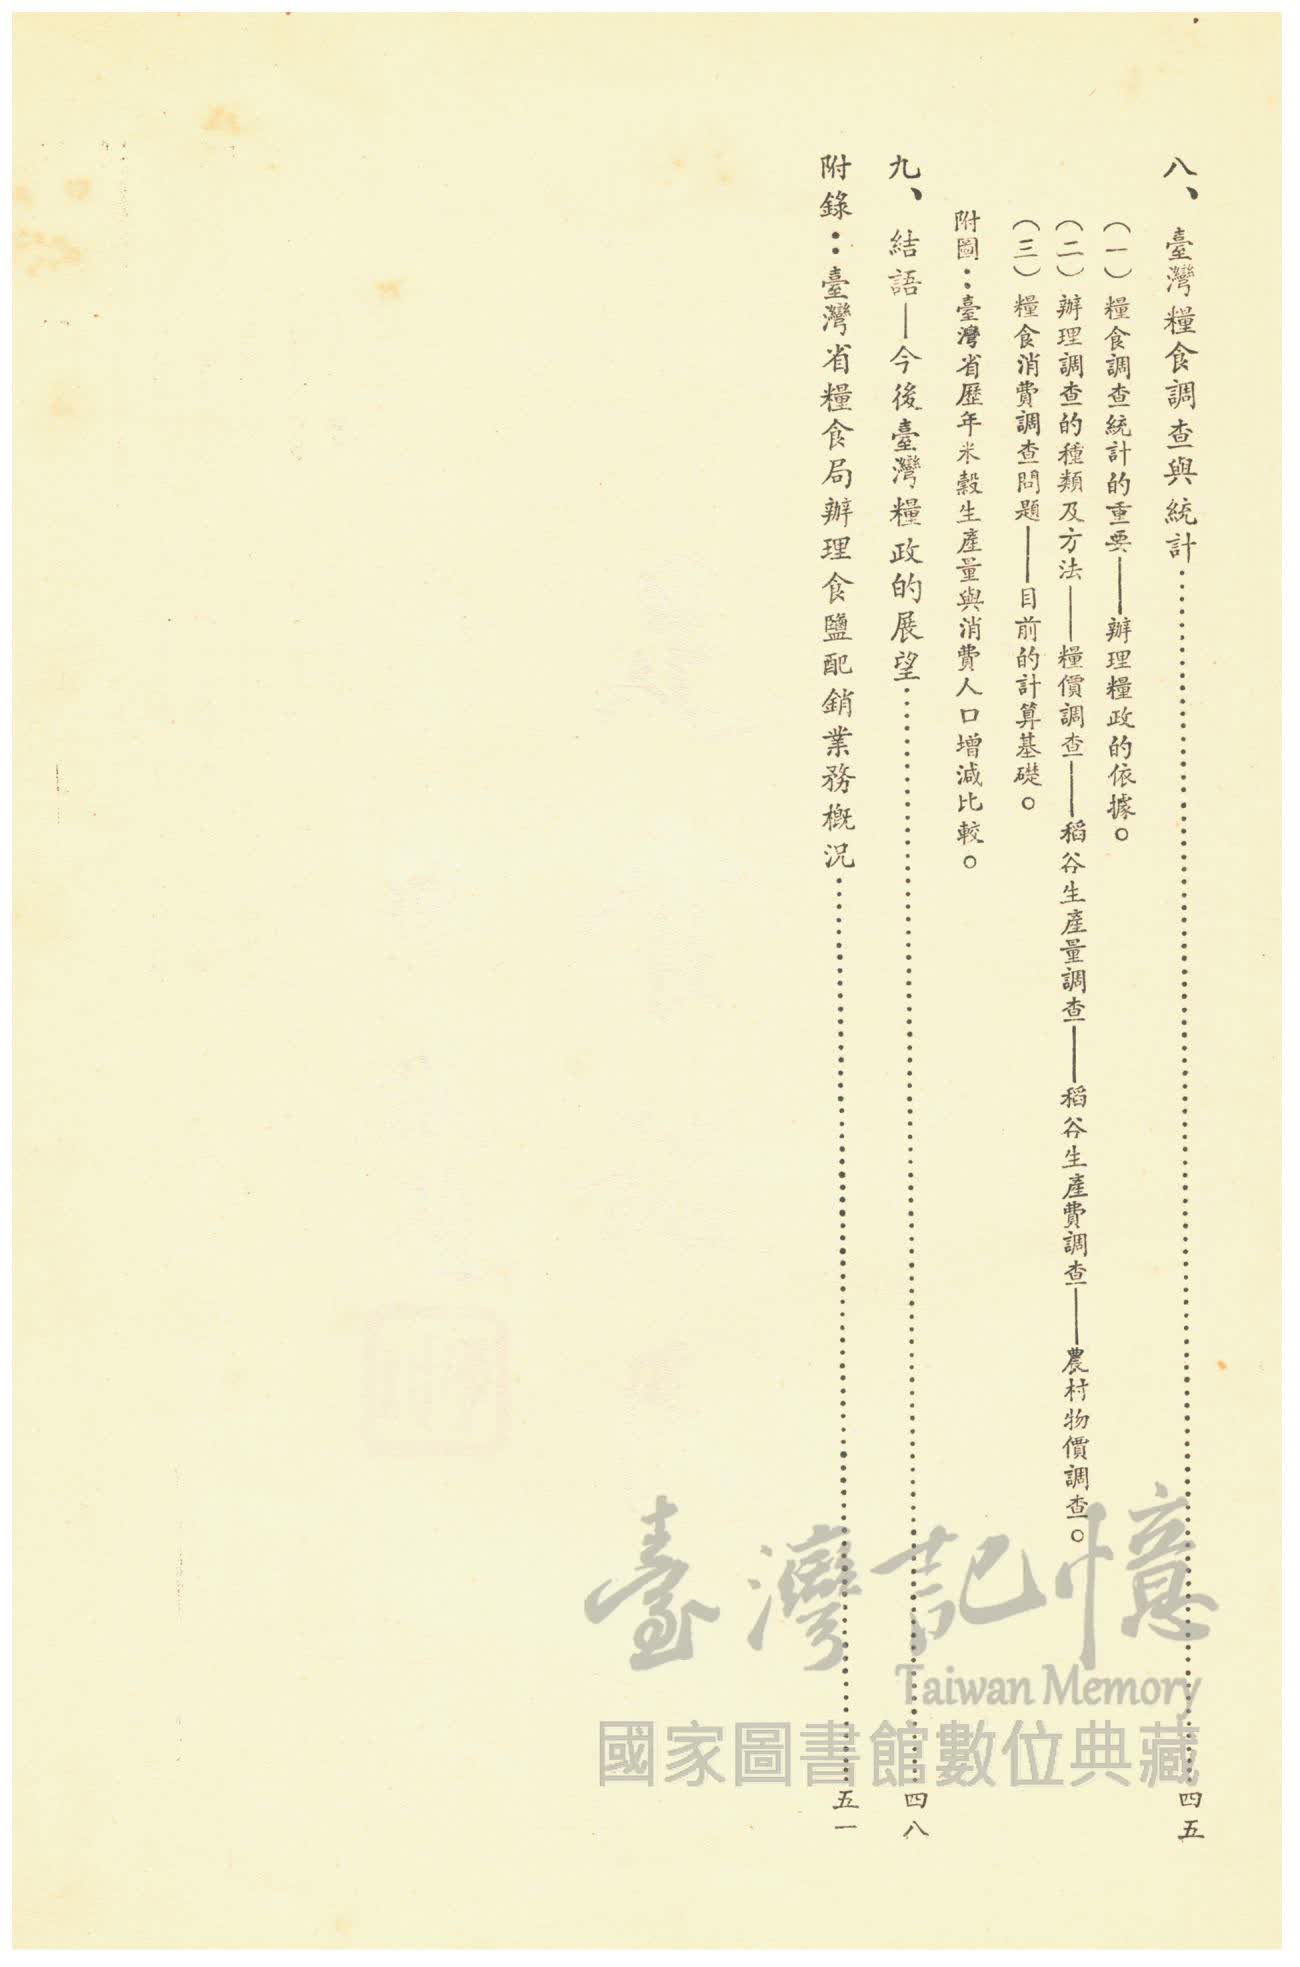 八、臺灣糧食調查與統計……………………………四五
(一)糧食調查統計的重要——辦理糧政的依據。
(二)辦理調查的種類及方法——糧價調查——稻谷生產量調查——稻谷生產費調查——農村物價調查。
(三)糧食消費調查問題——目前的計算基礎。
附圖:臺灣省歷年米穀生產量與消費人口增減比較。
九、結語—今後臺灣糧政的展望……………………………四八
附錄:臺灣省糧食局辦理食鹽配銷業務概況……………………………五一
臺灣記憶
Taiwan Memory
國家圖書館數位典藏